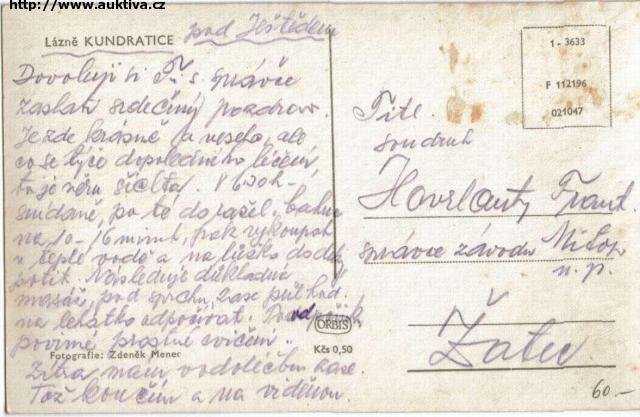 http://www.auktiva.cz
Lázně KUNDRATICE pod Ještědem
Dovoluji si Ti s. správče
zaslati srdečný pozdrav.
Je zde krásně a veselo, ale
co se týče dopoledního léčení,
to je šichta. V 6 30 h -
snídaně, po té do rašel. bahna
na 10-16 minut, pak vykoupat
v teplé vodě a na lůžko
potit. Následuje důkladná
masáž, pod sprchu, zase půl hod.
na lehátko odpočívat.
povinné prostné cvičení.
Zítra mám vodoléčbu zase.
Tož končím a na viděnou.
Fotografie: Zdeněk Menec
ORBIS
Kčs 0,50
1 - 3633
F 112196
021047
Titl.
soudruh
Havelanty Frant.
správce závodu
n. p.
Žatec
60.-